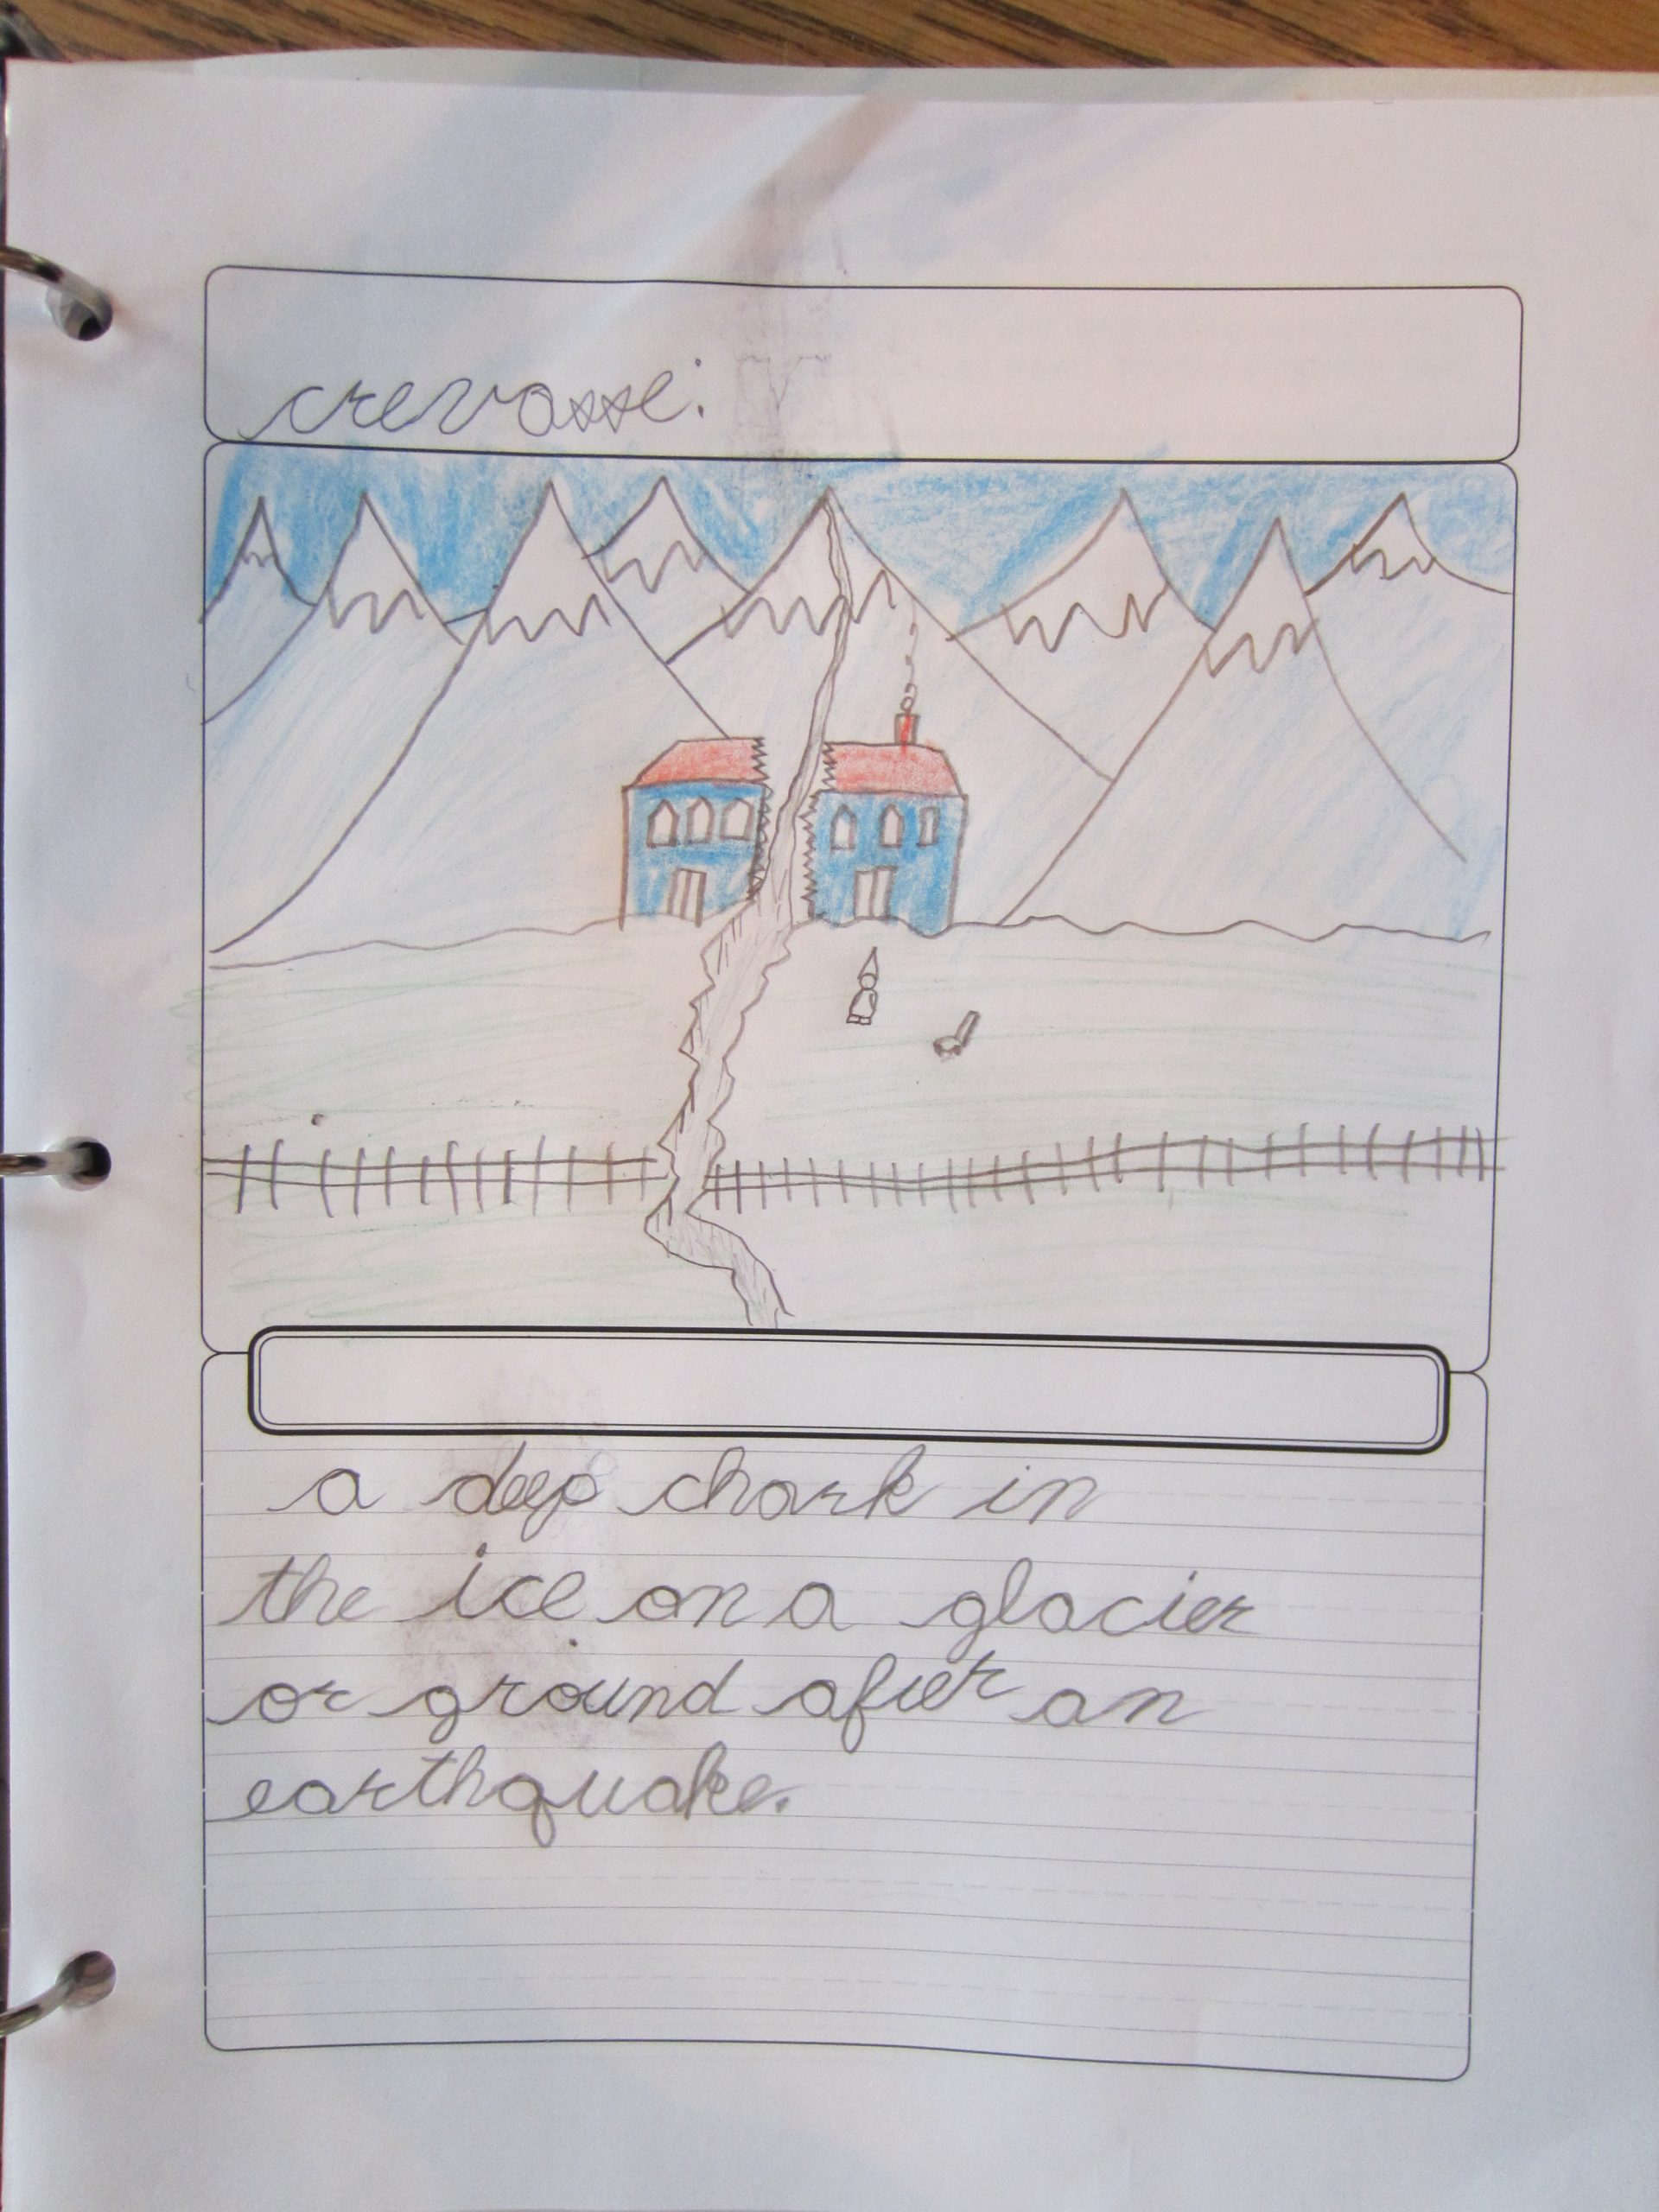 crevasse:
a deep chark in
the ice on a glacier
or ground after an
earthquake.